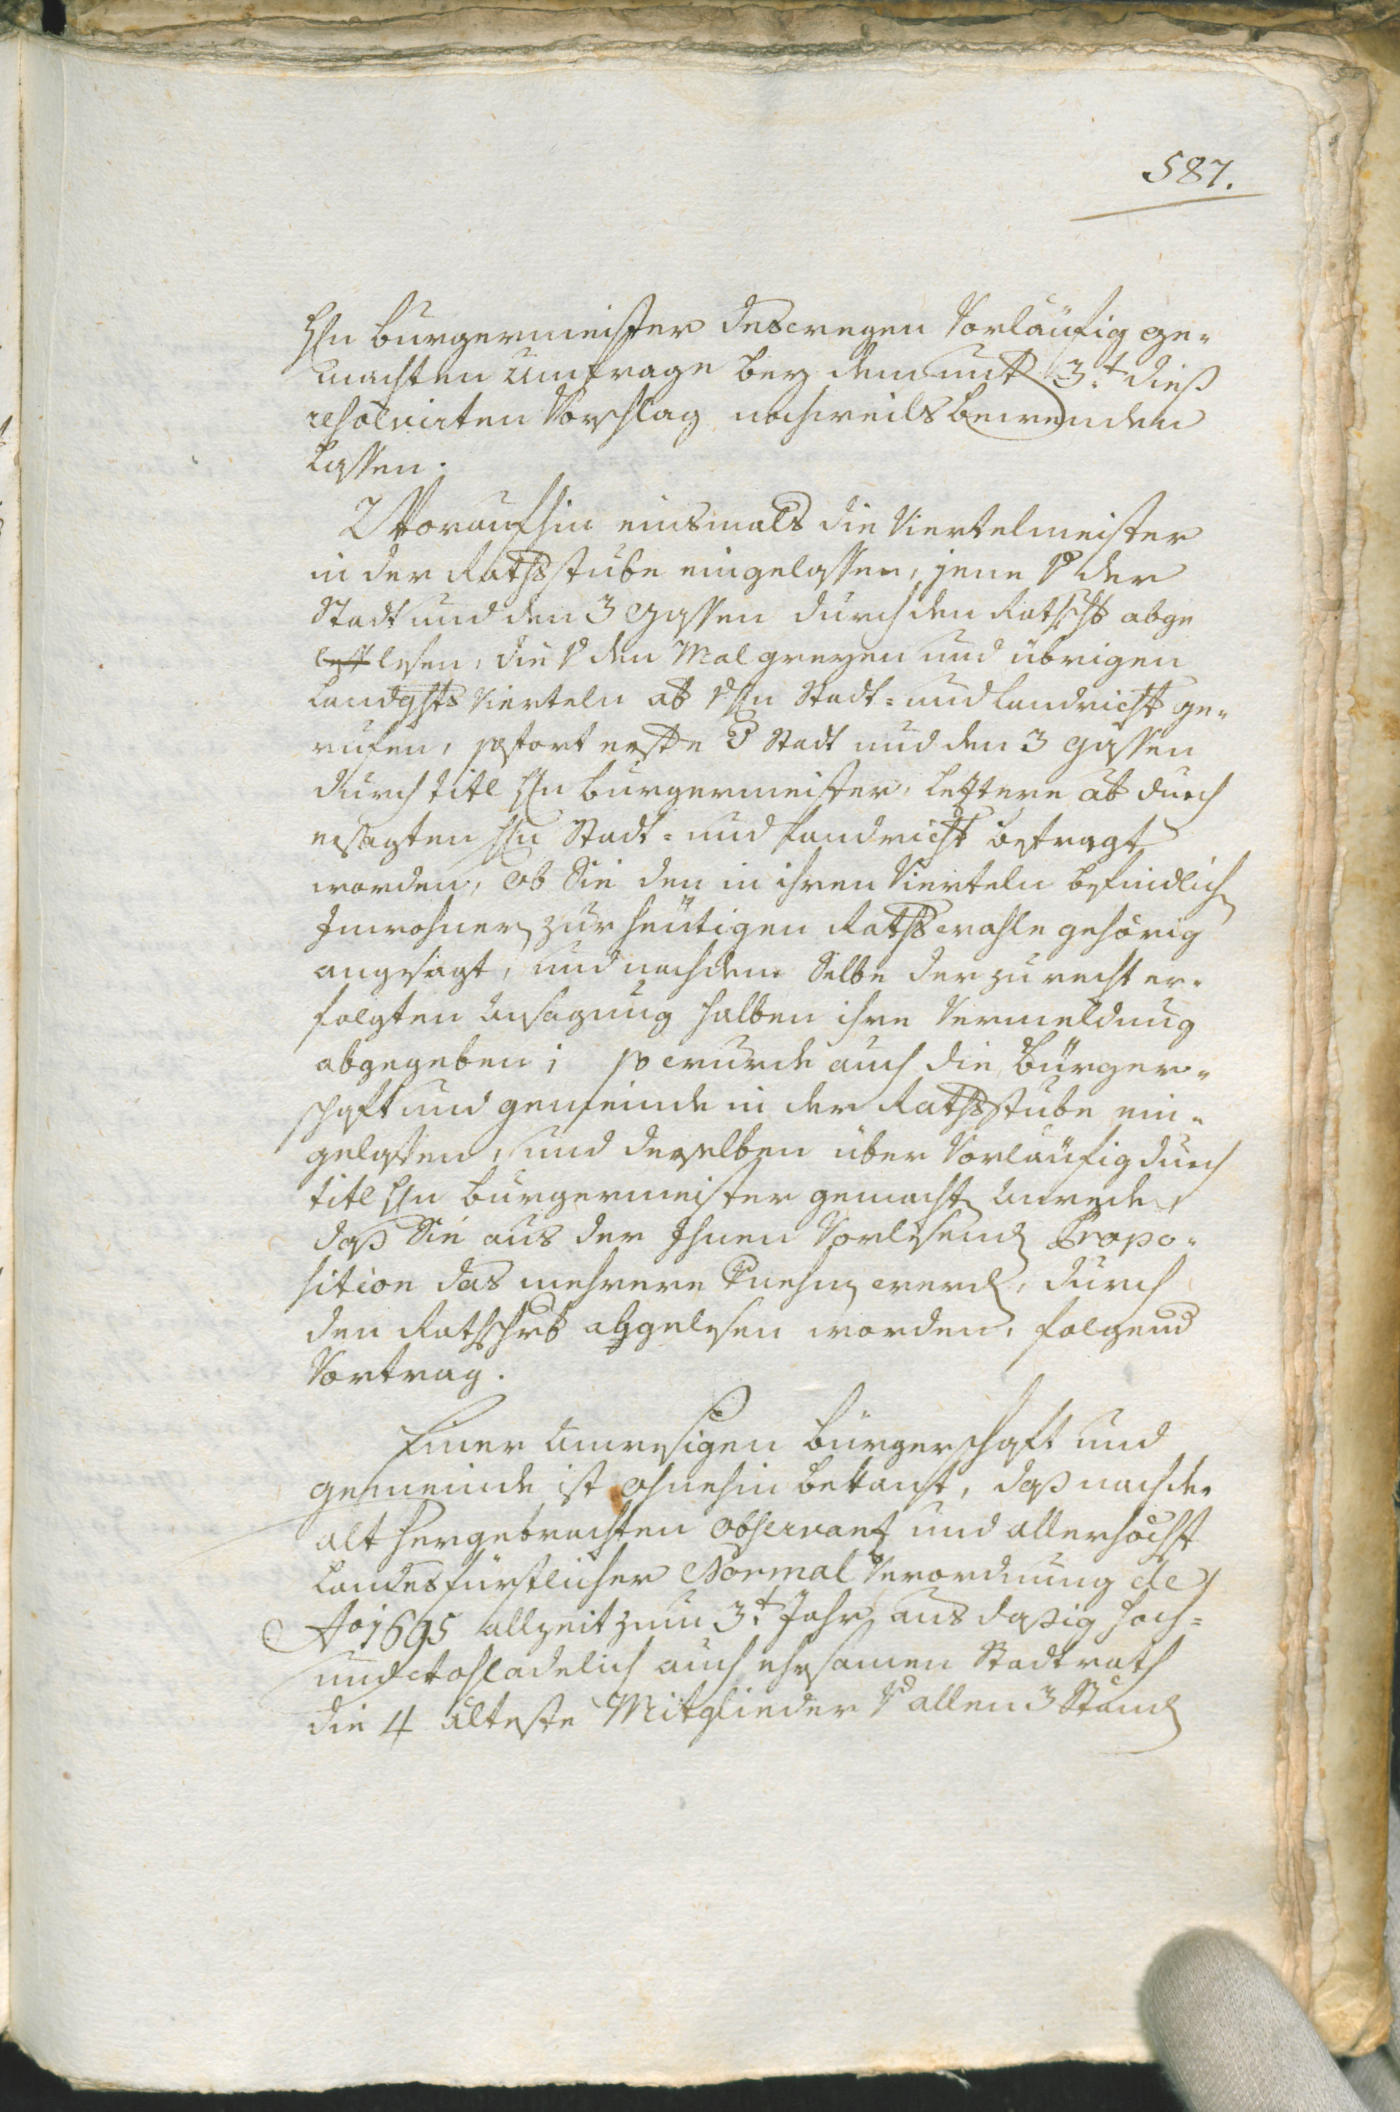 587.
Hn Burgermeister deswegen Vorläufig ge-
machten Umfrage bey dem unt 3t dieß
resolvirten Vorschlag nachweils bewenden
lassen.
Woraufhin einsmals die Viertelmeister
in der Rathsstube eingelassen, jene der
Stadt und den 3 Gassen durch den Rathschb abge
lesen, die den Malgreyen und übrigen
Landghts Vierteln ab Hn Stadt- und Landricht ge-
rufen, sofort erste Stadt und den 3 Gassen
durch titl Hn Burgermeister, letztere ab durch
ersagten Hn Stadt- und Landricht befragt
worden, ob Sie den in ihren Vierteln befindlich
Inwohner zur heutigen Rathswahle gehörig
angesagt, und nachdem Selbe der zu recht er-
folgten Ansagung halben ihre Vermeldung
abgegeben; so wurde auch die Bürger-
schaft und Gemeinde in der Rathsstube ein-
gelassen, und derselben über Vorläufig durch
titl Hn Burgermeister gemacht Anrede,
daß Sie aus der Ihnen Vorlesend Propo-
sition das mehrere Vnehm werd, durch
den Rathschrb abgelesen worden, folgend
Vortrag.
Einer Anwesigen Bürgerschaft und
Gemeinde ist ohnehin bekant, daß nach der
alt hergebrachten Observanz und allerhöchst
Landesfürstlicher Normal Verordnung de
Ao 1695 allzeit zum 3t Jahr aus dasig Hoch-
und Wohladelich auch ehrsamen Stadtrath
die 4 älteste Mitglieder allen 3 Stand